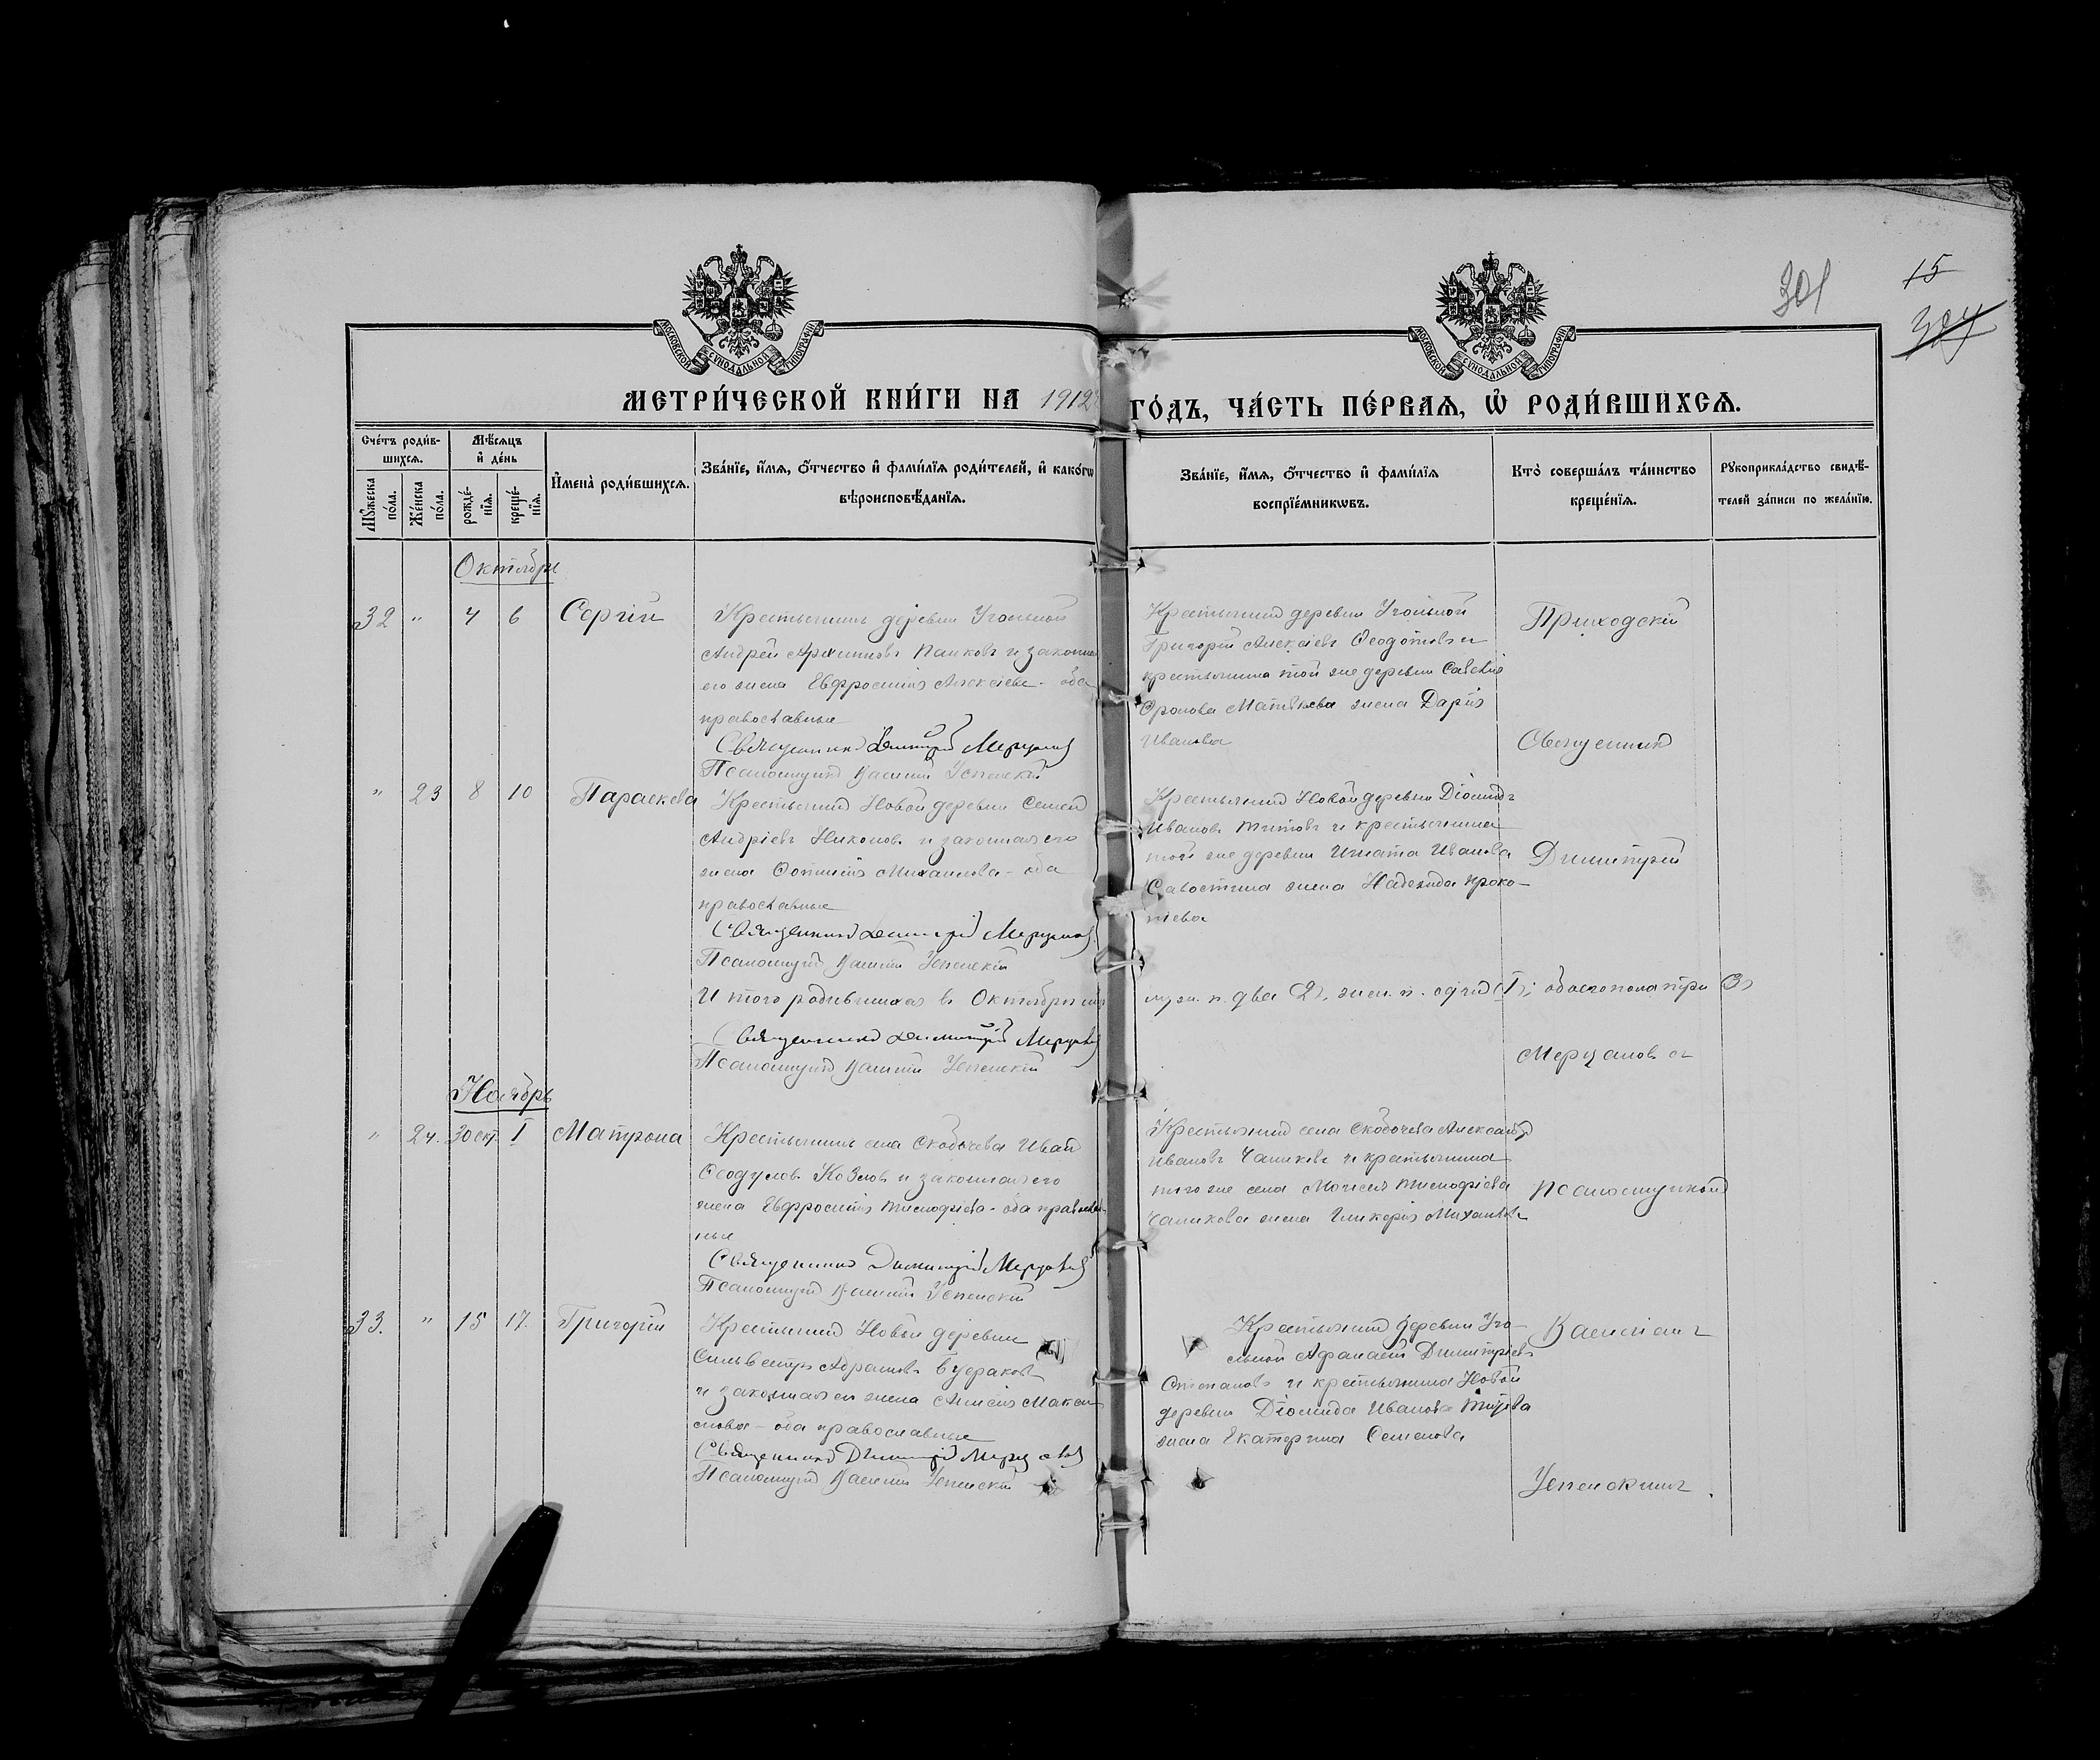 301
15
304
МОСКОВСКОЙ СУНОДАЛЬНОЙ ТИПОГРАФІИ
МОСКОВСКОЙ СУНОДАЛЬНОЙ ТИПОГРАФІИ
МЕТРИ́ЧЕСКОЙ КНИ́ГИ НА 1912 ГО́ДЪ, ЧА́СТЬ ПЕ́РВАЯ, Ѡ҆ РОДИ́ВШИХСѦ.
Сче́тъ роди́в-
шихсѧ.
Мѣ́сѧцъ
и҆ де́нь
Мꙋ́жеска
по́ла.
Же́нска
по́ла.
рожде́-
нїѧ.
креще́-
нїѧ.
И҆мена̀ роди́вшихсѧ.
Зва́нїе, и҆́мѧ, ѻ҆́тчество и҆ фами́лїѧ роди́телей, и҆ како́гѡ
вѣроисповѣ́данїѧ.
Зва́нїе, и҆́мѧ, ѻ҆́тчество и҆ фами́лїѧ
воспрїе́мникѡвъ.
Кто̀ соверша́лъ та́инство
креще́нїѧ.
Рꙋкоприкла́дство свидѣ́-
телей за́писи по жела́нїю.
Октябрь
32 " 4 6 Сергій
Крестьянинъ деревни Угольной
Андрей Архиповъ Панковъ и законная
его жена Евфросинія Алексіева - оба
православные
Священникъ Димитрій Мерцаловъ
Псаломщикъ Василій Успенскій
Крестьянинъ деревни Угольной
Григорій Алексіевъ Ѳеодотовъ и
крестьянина той же деревни Савелія
Фролова Матвѣева жена Дарія
Иванова
Приходскій
Священникъ
" 23 8 10 Параскева
Крестьянинъ Новой деревни Семенъ
Андріевъ Никоновъ и законная его
жена Фотинія Михаилова - оба
православные
Священникъ Димитрій Мерцаловъ
Псаломщикъ Василій Успенскій
Крестьянинъ Новой деревни Діомидъ
Ивановъ Титовъ и крестьянина
той же деревни Игната Иванова
Савостина жена Надежда Проко-
піева
Димитрій
Итого родившихся въ Октябрѣ
муж. п. два (2), жен. п. одна (1); обоего пола три (3)
Священникъ Димитрій Мерцаловъ
Псаломщикъ Василій Успенскій
Мерцаловъ съ
Ноябрь
" 24. 30 окт. 1 Матрона
Крестьянинъ села Скобочева Иванъ
Ѳеодуловъ Козловъ и законная его
жена Евфросинія Тимофіева - оба православ-
ные
Священникъ Димитрій Мерцаловъ
Псаломщикъ Василій Успенскій
Крестьянинъ села Скобочева Александръ
Ивановъ Чаликовъ и крестьянина
того же села Моисея Тимофіева
Чаликова жена Гликерія Михаилова
Псаломщикомъ
33. " 15 17. Григорій
Крестьянинъ Новой деревни
Сильвестръ Абрамовъ
и законная его жена Анисія Макси-
мова - оба православные
Священникъ Димитрій Мерцаловъ
Псаломщикъ Василій Успенскій
Крестьянинъ деревни Уго-
льной Афанасій Димитріевъ
Степановъ и крестьянина Новой
деревни Діомида Иванова Титова
жена Екатерина Семенова
Василіемъ
Успенскимъ.